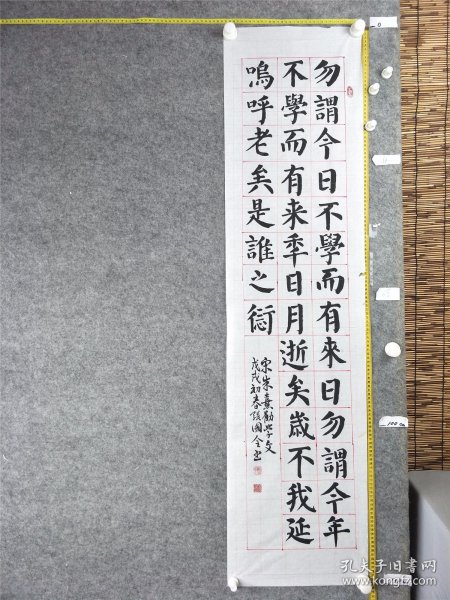 勿謂今日不學而有來日勿謂今年
不學而有来秊日月逝矣歲不我延
嗚呼老矣是誰之愆
宋朱熹勸學文
戊戌初春張國全书
0
100 cm
孔夫子旧书网
www.kongfz.com